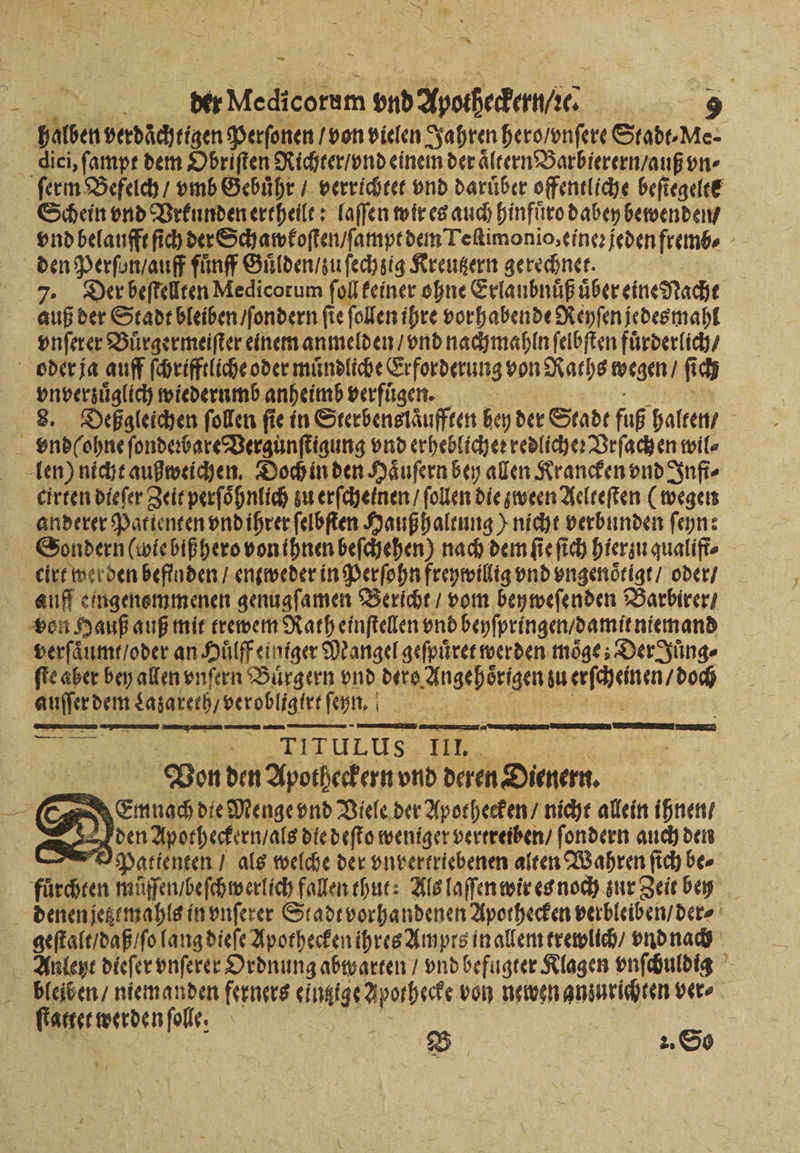 der Medicorum vnd Apotheckern/ꝛc. 9
halben verdächtigen Personen / von vielen Jahren hero/vnsere Stadt-Me-
dici, sampt dem Obristen Richter/vnd einem der ältern Barbierern/auß vn-
serm Befelch / vmb Gebühr / verrichtet vnd darüber offentliche besiegelte
Schein vnd Vrkunden ertheilt: lassen wir es auch hinfüro dabey bewenden/
vnd belaufft sich der Schawkosten/sampt dem Testimonio, einer jeden fremb-
den Person/auff fünff Gülden/zu sechzig Kreutzern gerechnet.
7. Der bestellten Medicorum soll keiner ohne Erlaubnüß über eine Nacht
auß der Stadt bleiben/sondern sie sollen ihre vorhabende Reysen jedesmahl
vnserer Bürgermeister einem anmelden / vnd nachmahln selbsten fürderlich/
oder ja auff schrifftliche oder mündliche Erforderung von Raths wegen / sich
vnverzüglich wiederumb anheimb verfügen.
8. Deßgleichen sollen sie in Sterbensläufften bey der Stadt fuß halten/
vnd (ohne sonderbare Vergünstigung vnd erheblicher redlicher Vrsachen wil-
len) nicht außweichen. Doch in den Häusern bey allen Krancken vnd Infi-
cirten dieser Zeit persöhnlich zu erscheinen / sollen die zween Aeltesten (wegen
anderer Patienten vnd ihrer selbsten Haußhaltung) nicht verbunden seyn:
Sondern (wie bißhero von ihnen beschehen) nach dem sie sich hierzu qualifi-
cirt werden befinden / entweder in Persohn freywillig vnd vngenötigt / oder/
auff eingenommenen genugsamen Bericht / vom beywesenden Barbirer/
von Hauß auß mit trewem Rath einstellen vnd beyspringen/damit niemand
versäumt/oder an Hülff einiger Mangel gespüret werden möge; Der Jüng-
ste aber bey allen vnsern Bürgern vnd dero Angehörigen zu erscheinen / doch
ausser dem Lazareth/verobligirt seyn.
TITULUS III.
Von den Apotheckern vnd deren Dienern.
Demnach die Menge vnd Viele der Apothecken / nicht allein ihnen/
den Apotheckern/als die desto weniger vertreiben/ sondern auch den
Patienten / als welche der vnvertriebenen alten Wahren sich be-
fürchten müssen/beschwerlich fallen thut: Als lassen wir es noch zur Zeit bey
denen jetztmahls in vnserer Stadt vorhandenen Apothecken verbleiben/ der-
gestalt/daß/so lang diese Apothecken ihres Ampts in allem trewlich/ vnd nach
Anleyt dieser vnserer Ordnung abwarten / vnd befugter Klagen vnschuldig
bleiben/ niemanden ferners eintzige Apothecke von newen anzurichten ver-
stattet werden solle.
B 2. So